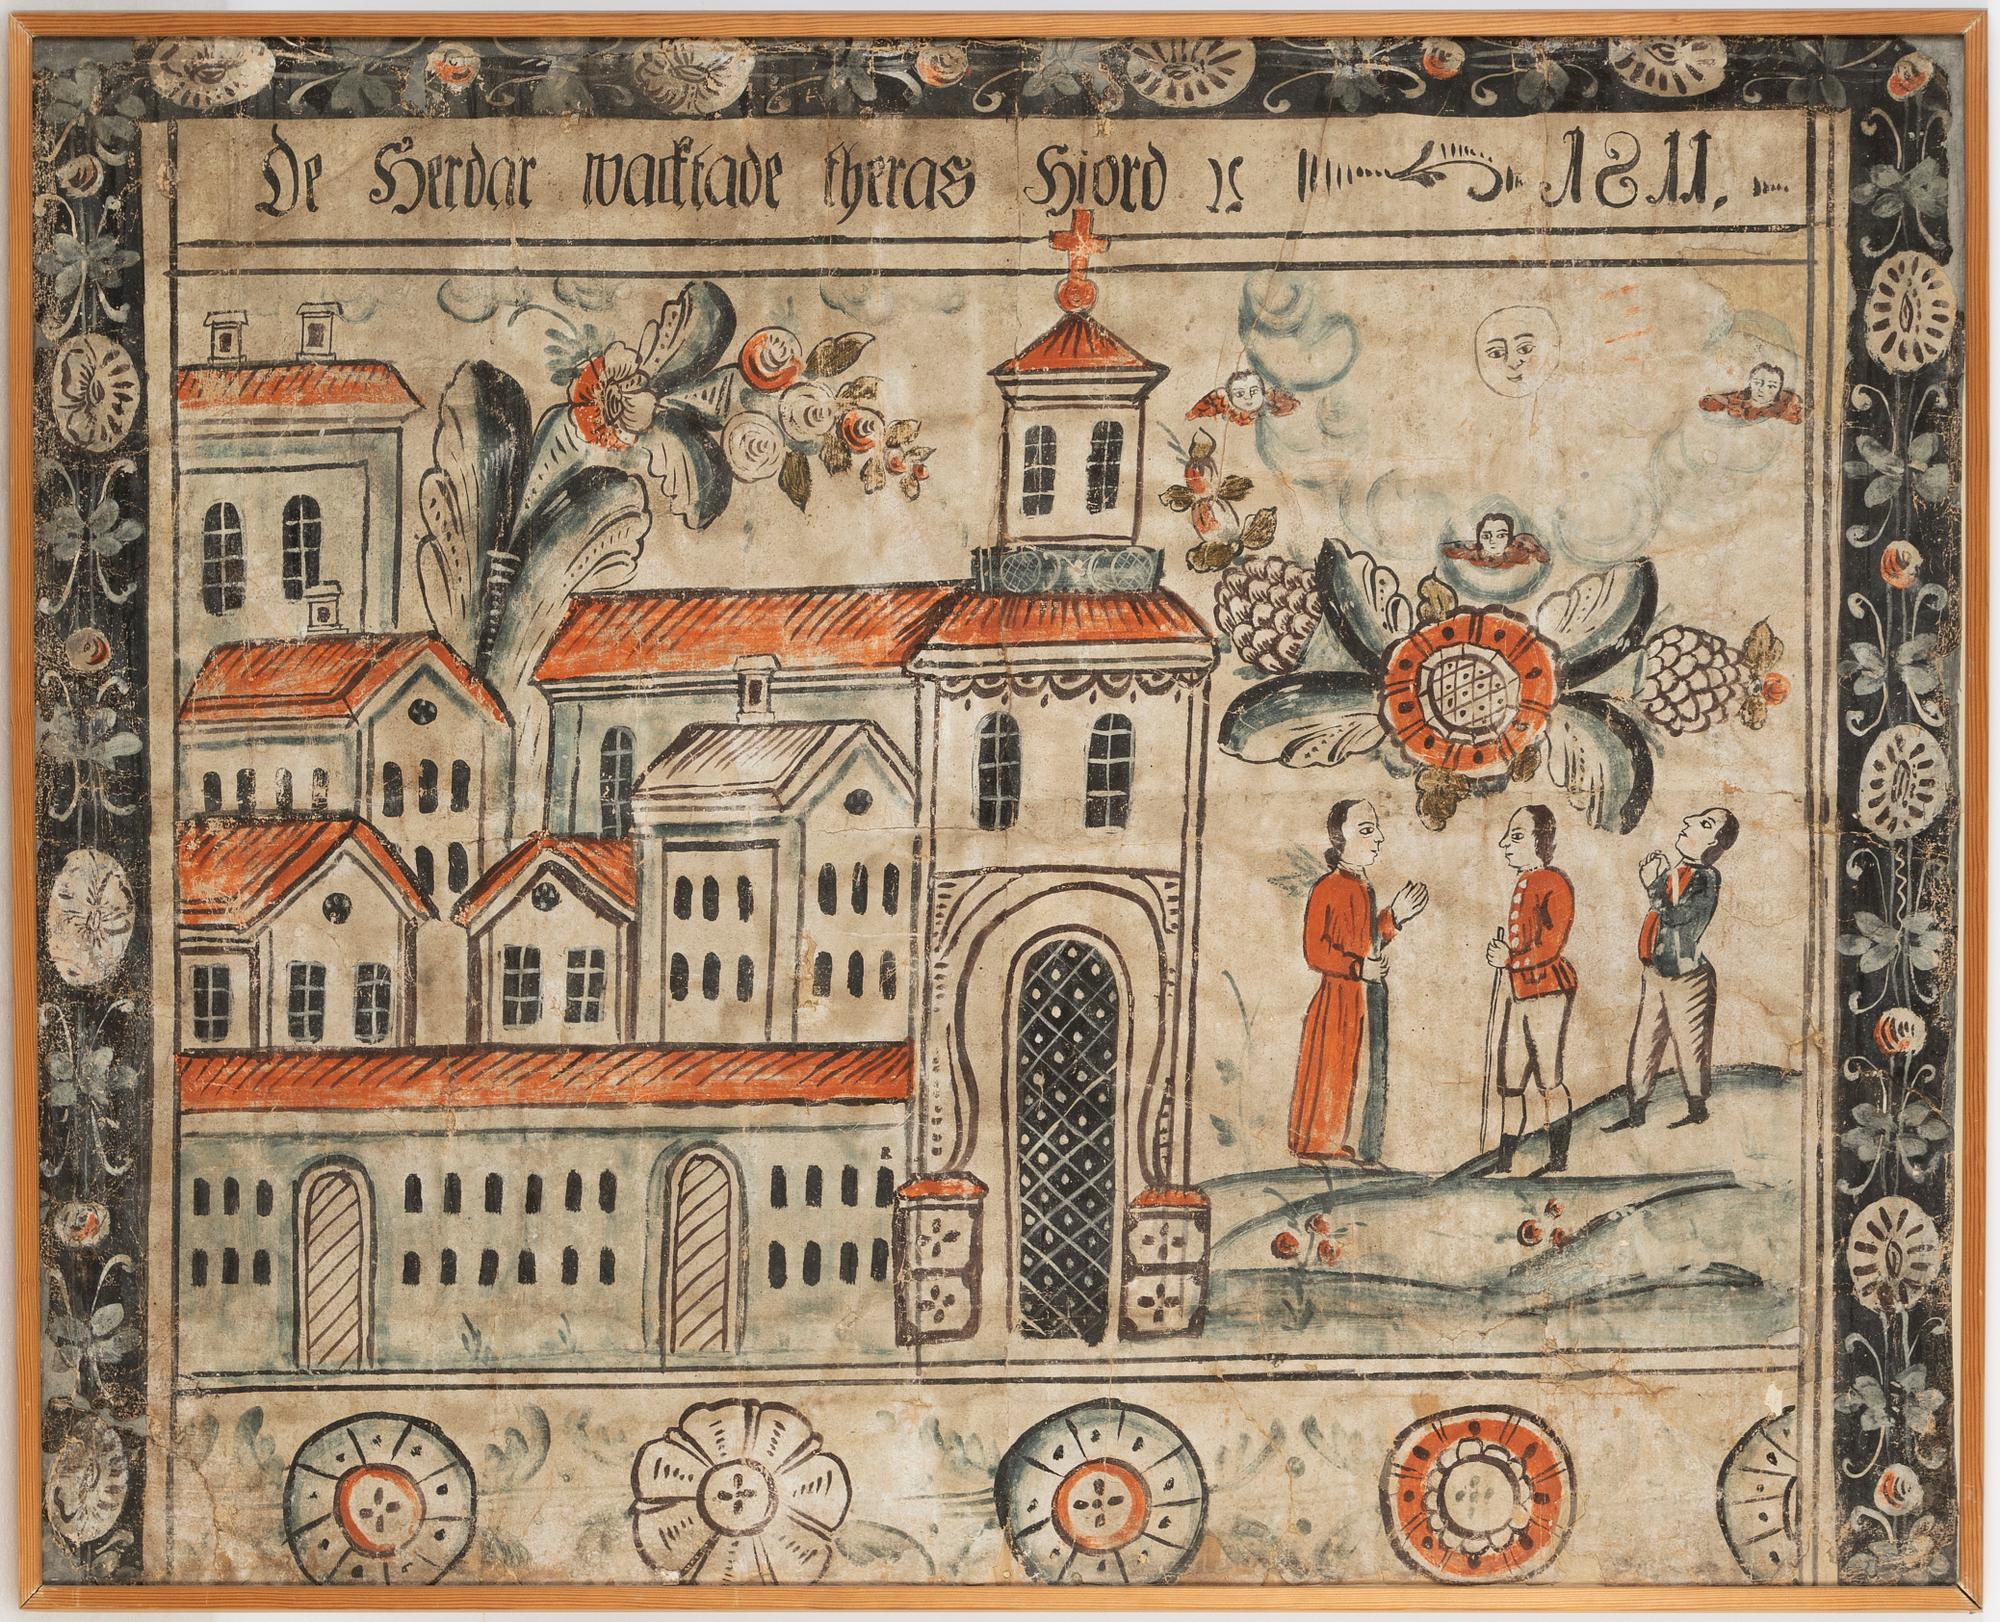 De Herdar wacktade theras Hiord 1811.